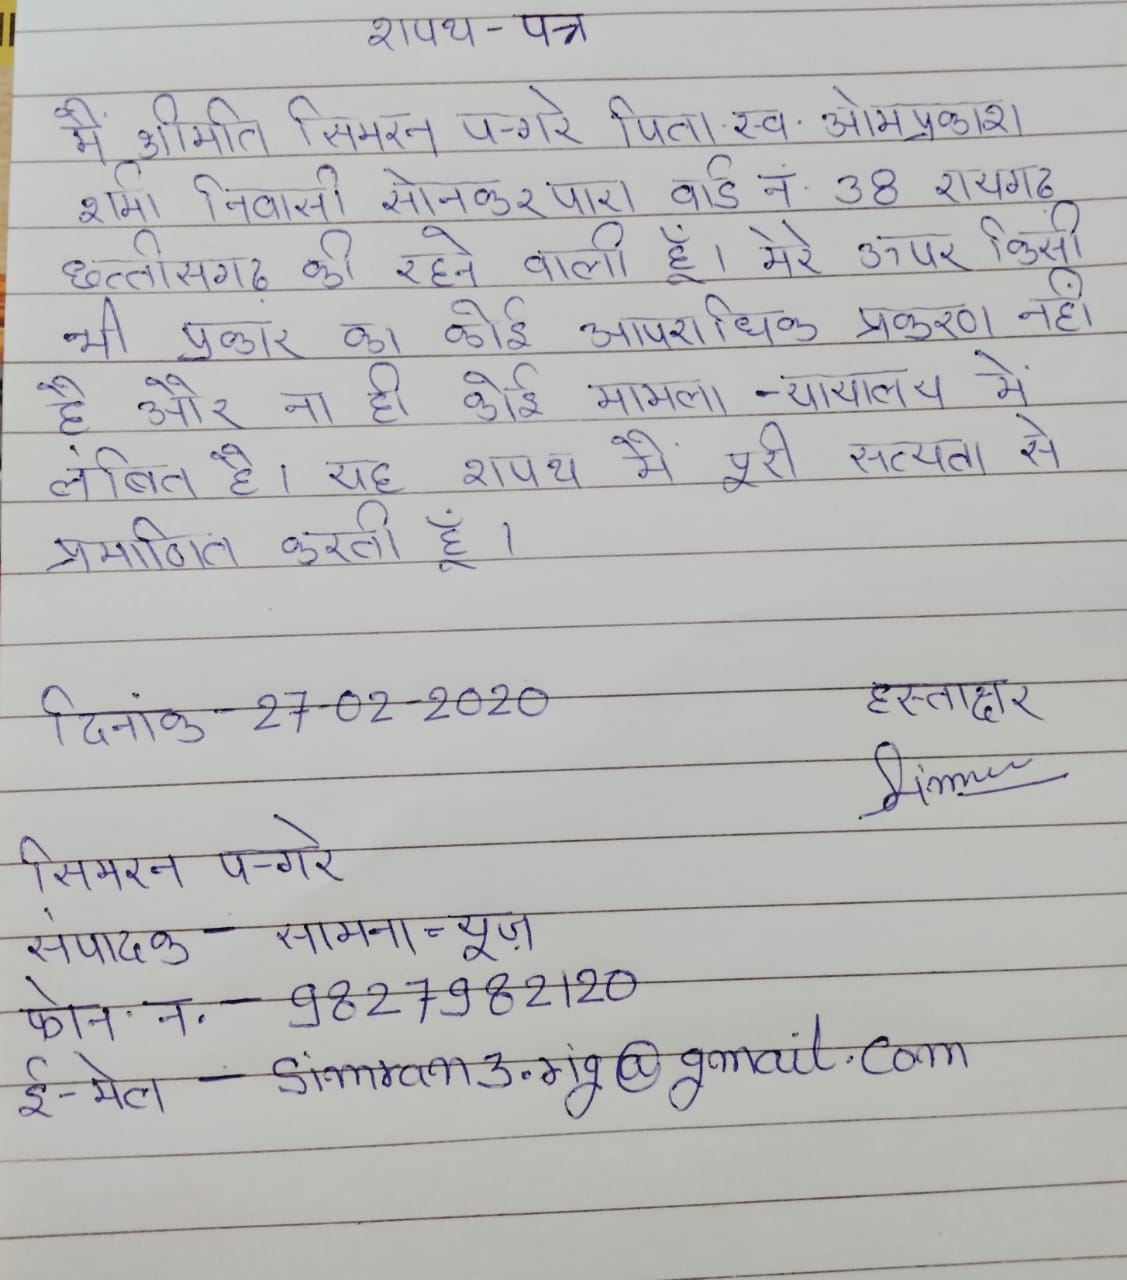 शपथ-पत्र
मैं श्रीमति सिमरन पन्गरे पिता स्व. ओमप्रकाश
शर्मा निवासी सोनकर पारा वार्ड नं. 38 रायगढ
छत्तीसगढ की रहने वाली हूँ। मेरे ऊपर किसी
भी प्रकार का कोई आपराधिक प्रकरण नहीं
है और ना ही कोई मामला न्यायालय में
लंबित है। यह शपथ मैं पूरी सत्यता से
प्रमाणित करती हूँ।
दिनांक - 27-02-2020 हस्ताक्षर
Simran
सिमरन पन्गरे
संपादक - सामना न्यूज़
फोन. न. - 9827982120
ई-मेल - Simran3.rig@gmail.com